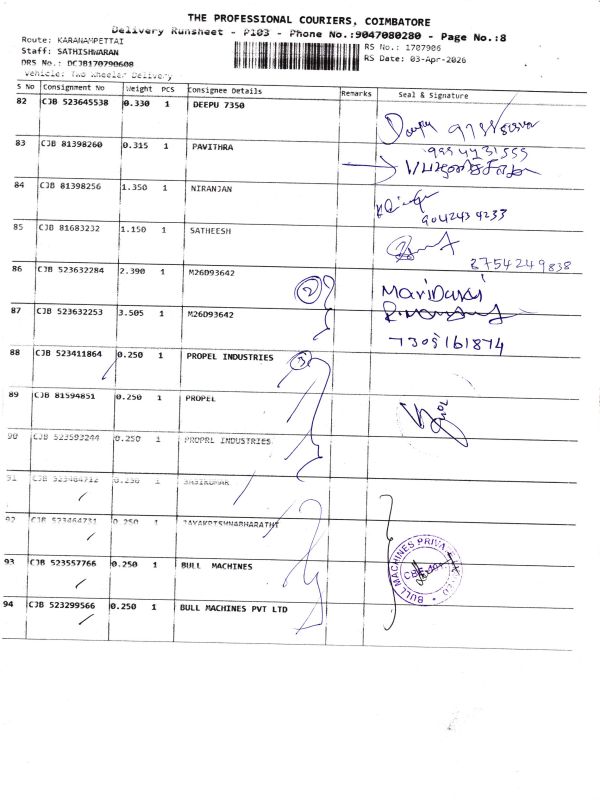 THE PROFESSIONAL COURIERS, COIMBATORE
Delivery Runsheet - P103 - Phone No.:9047080280 - Page No.:8
Route: KARANAMPETTAI
Staff: SATHISHWARAN
DRS No.: DCJB170790608
Vehicle: Two Wheeler Delivery
RS No.: 1707906
RS Date: 03-Apr-2026
S No Consignment No Weight PCS Consignee Details Remarks Seal & Signature
82 CJB 523645538 0.330 1 DEEPU 7350 Deepu
83 CJB 81398260 0.315 1 PAVITHRA
84 CJB 81398256 1.350 1 NIRANJAN 9042434233
85 CJB 81683232 1.150 1 SATHEESH 8754249838
86 CJB 523632284 2.390 1 M26D93642 2
87 CJB 523632253 3.505 1 M26D93642
7305161874
88 CJB 523411864 0.250 1 PROPEL INDUSTRIES 3
89 CJB 81594851 0.250 1 PROPEL
90 CJB 523593244 0.250 1 PROPRL INDUSTRIES
91 CJB 523464712 0.250 1 SASIKUMAR
92 CJB 523464731 0.250 1 JAYAKRISHNABHARATHI
93 CJB 523557766 0.250 1 BULL MACHINES BULL MACHINES PRIVA
94 CJB 523299566 0.250 1 BULL MACHINES PVT LTD